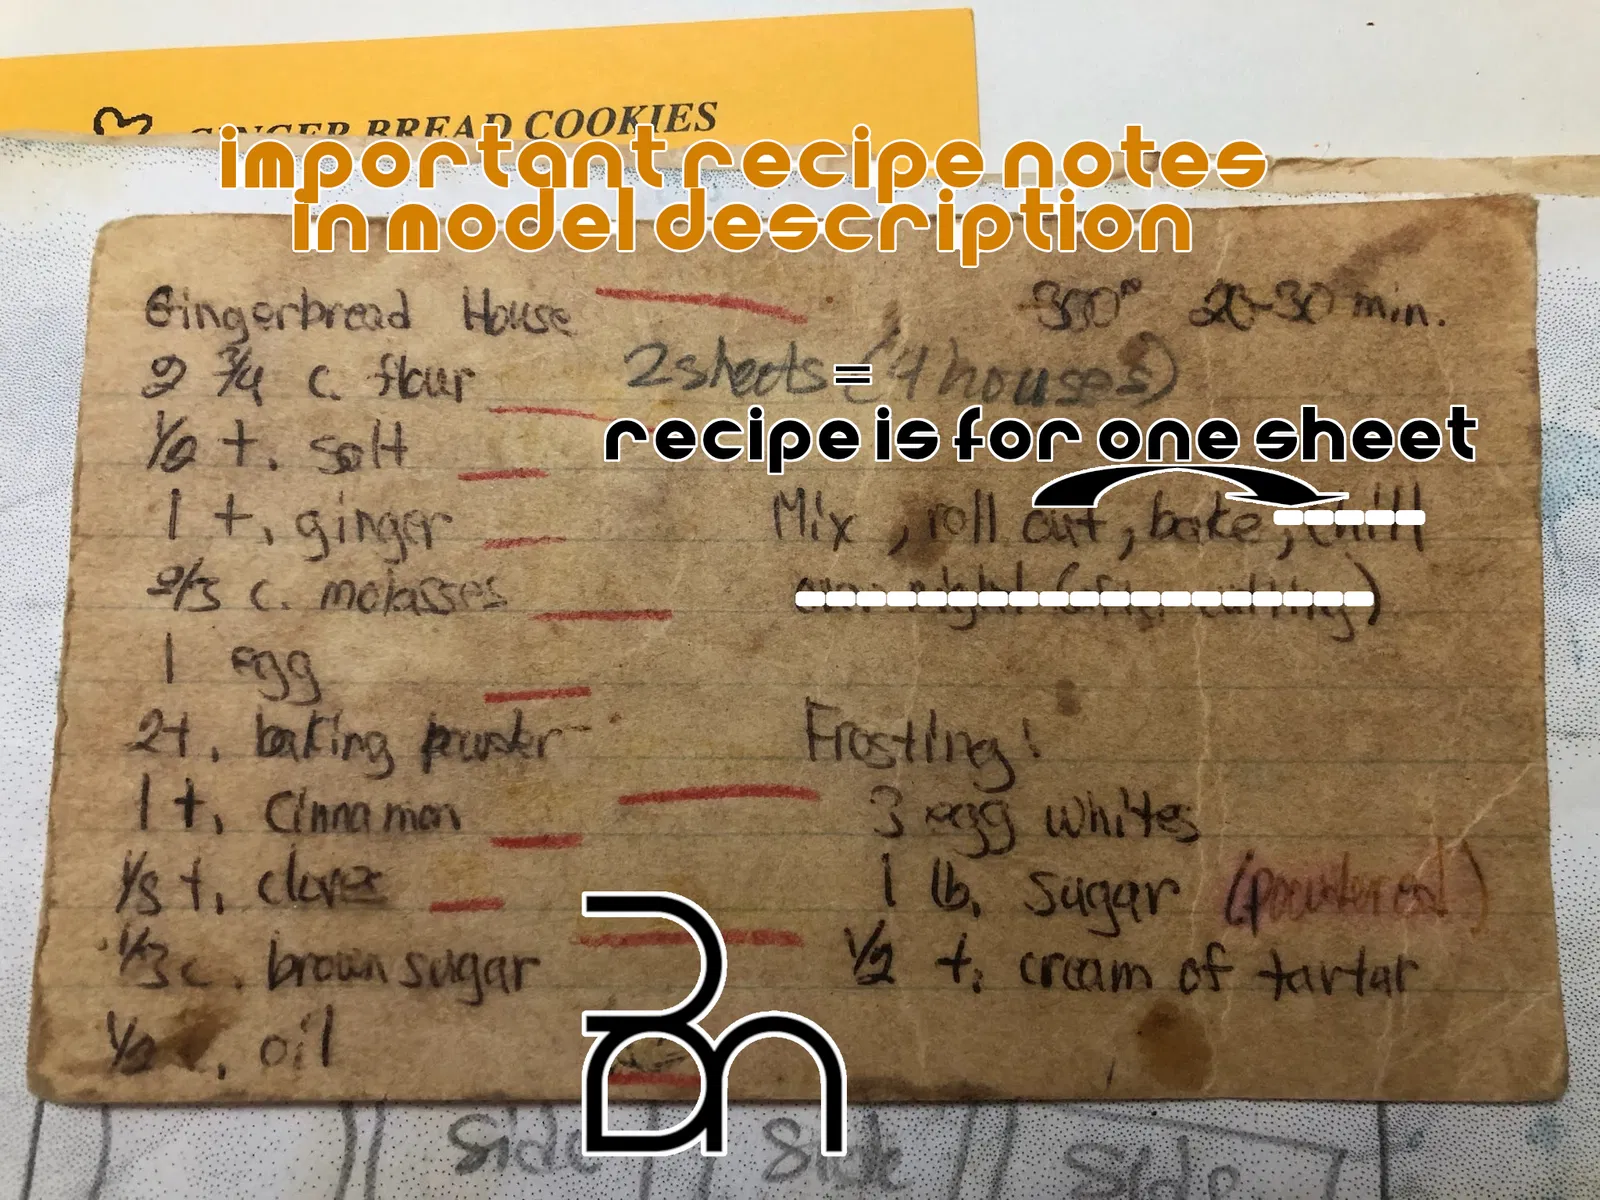 GINGER BREAD COOKIES
important recipe notes
in model description
Gingerbread House 350° 20-30 min.
2 3/4 c. flour 2 sheets = (4 houses)
recipe is for one sheet
1/2 t. salt
1 t. ginger Mix, roll out, bake, chill
2/3 c. molasses over night (after cutting)
1 egg
2 t. baking powder Frosting!
1 t. cinnamon 3 egg whites
t. cloves 1 lb. sugar (powdered)
1/3 c. brown sugar 1/2 t. cream of tartar
1/2 c. oil
Side Side Side